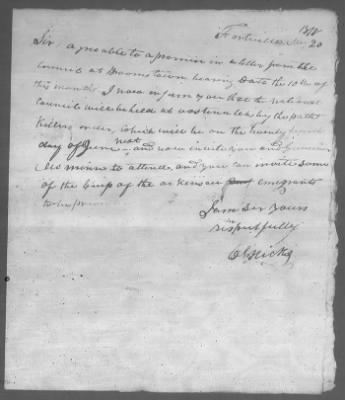 Fortville May 20
Sir, agreeable to a promise in a letter from the
Council at Brooms town bearing date the 10th of
this month I now inform you that the national
Council will be held at oostenaleh by the path
Killers order, which will be on the twenty
day of June next and now invite you and
to attend, and you can invite some
of the Cheifs of the arkensau emigrants
to be
I am Sir yours
respectfully
C Hicks